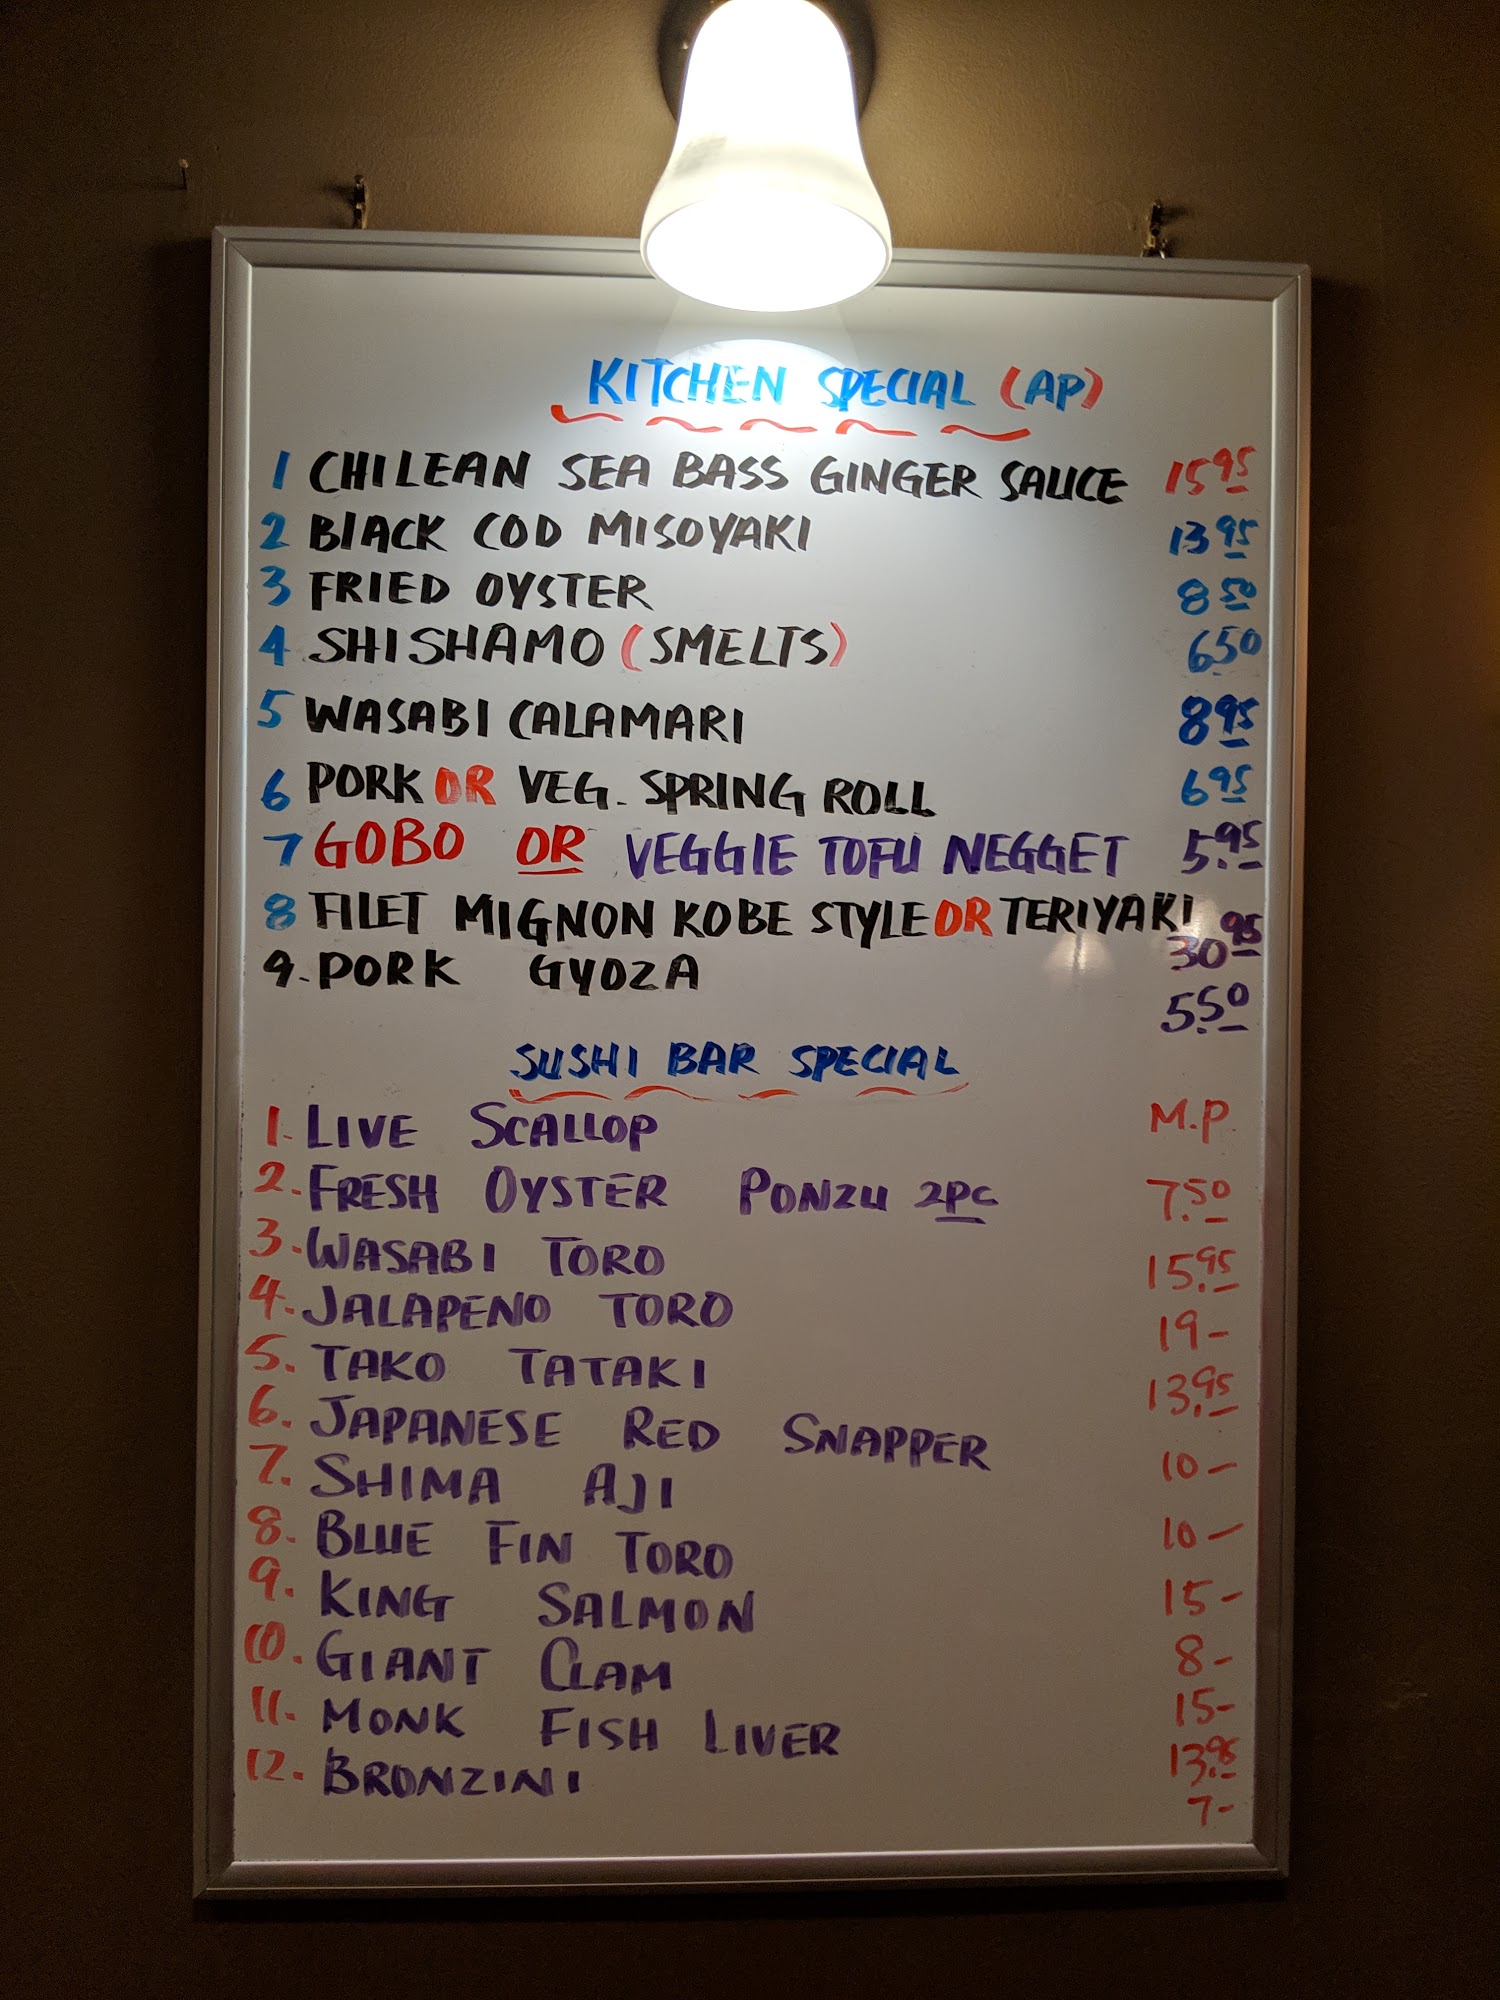 KITCHEN SPECIAL (AP)
1 CHILEAN SEA BASS GINGER SAUCE 15 95
2 BLACK COD MISOYAKI 13 95
3 FRIED OYSTER 8 50
4 SHISHAMO (SMELTS) 6 50
5 WASABI CALAMARI 8 95
6 PORK OR VEG. SPRING ROLL 6 95
7 GOBO OR VEGGIE TOFU NEGGET 5.95
8 FILET MIGNON KOBE STYLE OR TERIYAKI 30 95
9. PORK GYOZA 5.50
SUSHI BAR SPECIAL
1. LIVE SCALLOP M.P.
2. FRESH OYSTER PONZU 2PC 7.50
3. WASABI TORO 15.95
4. JALAPENO TORO 19-
5. TAKO TATAKI 13.95
6. JAPANESE RED SNAPPER 10-
7. SHIMA AJI 10-
8. BLUE FIN TORO 15-
9. KING SALMON 8-
10. GIANT CLAM 15-
11. MONK FISH LIVER 13.95
12. BRONZINI 7-